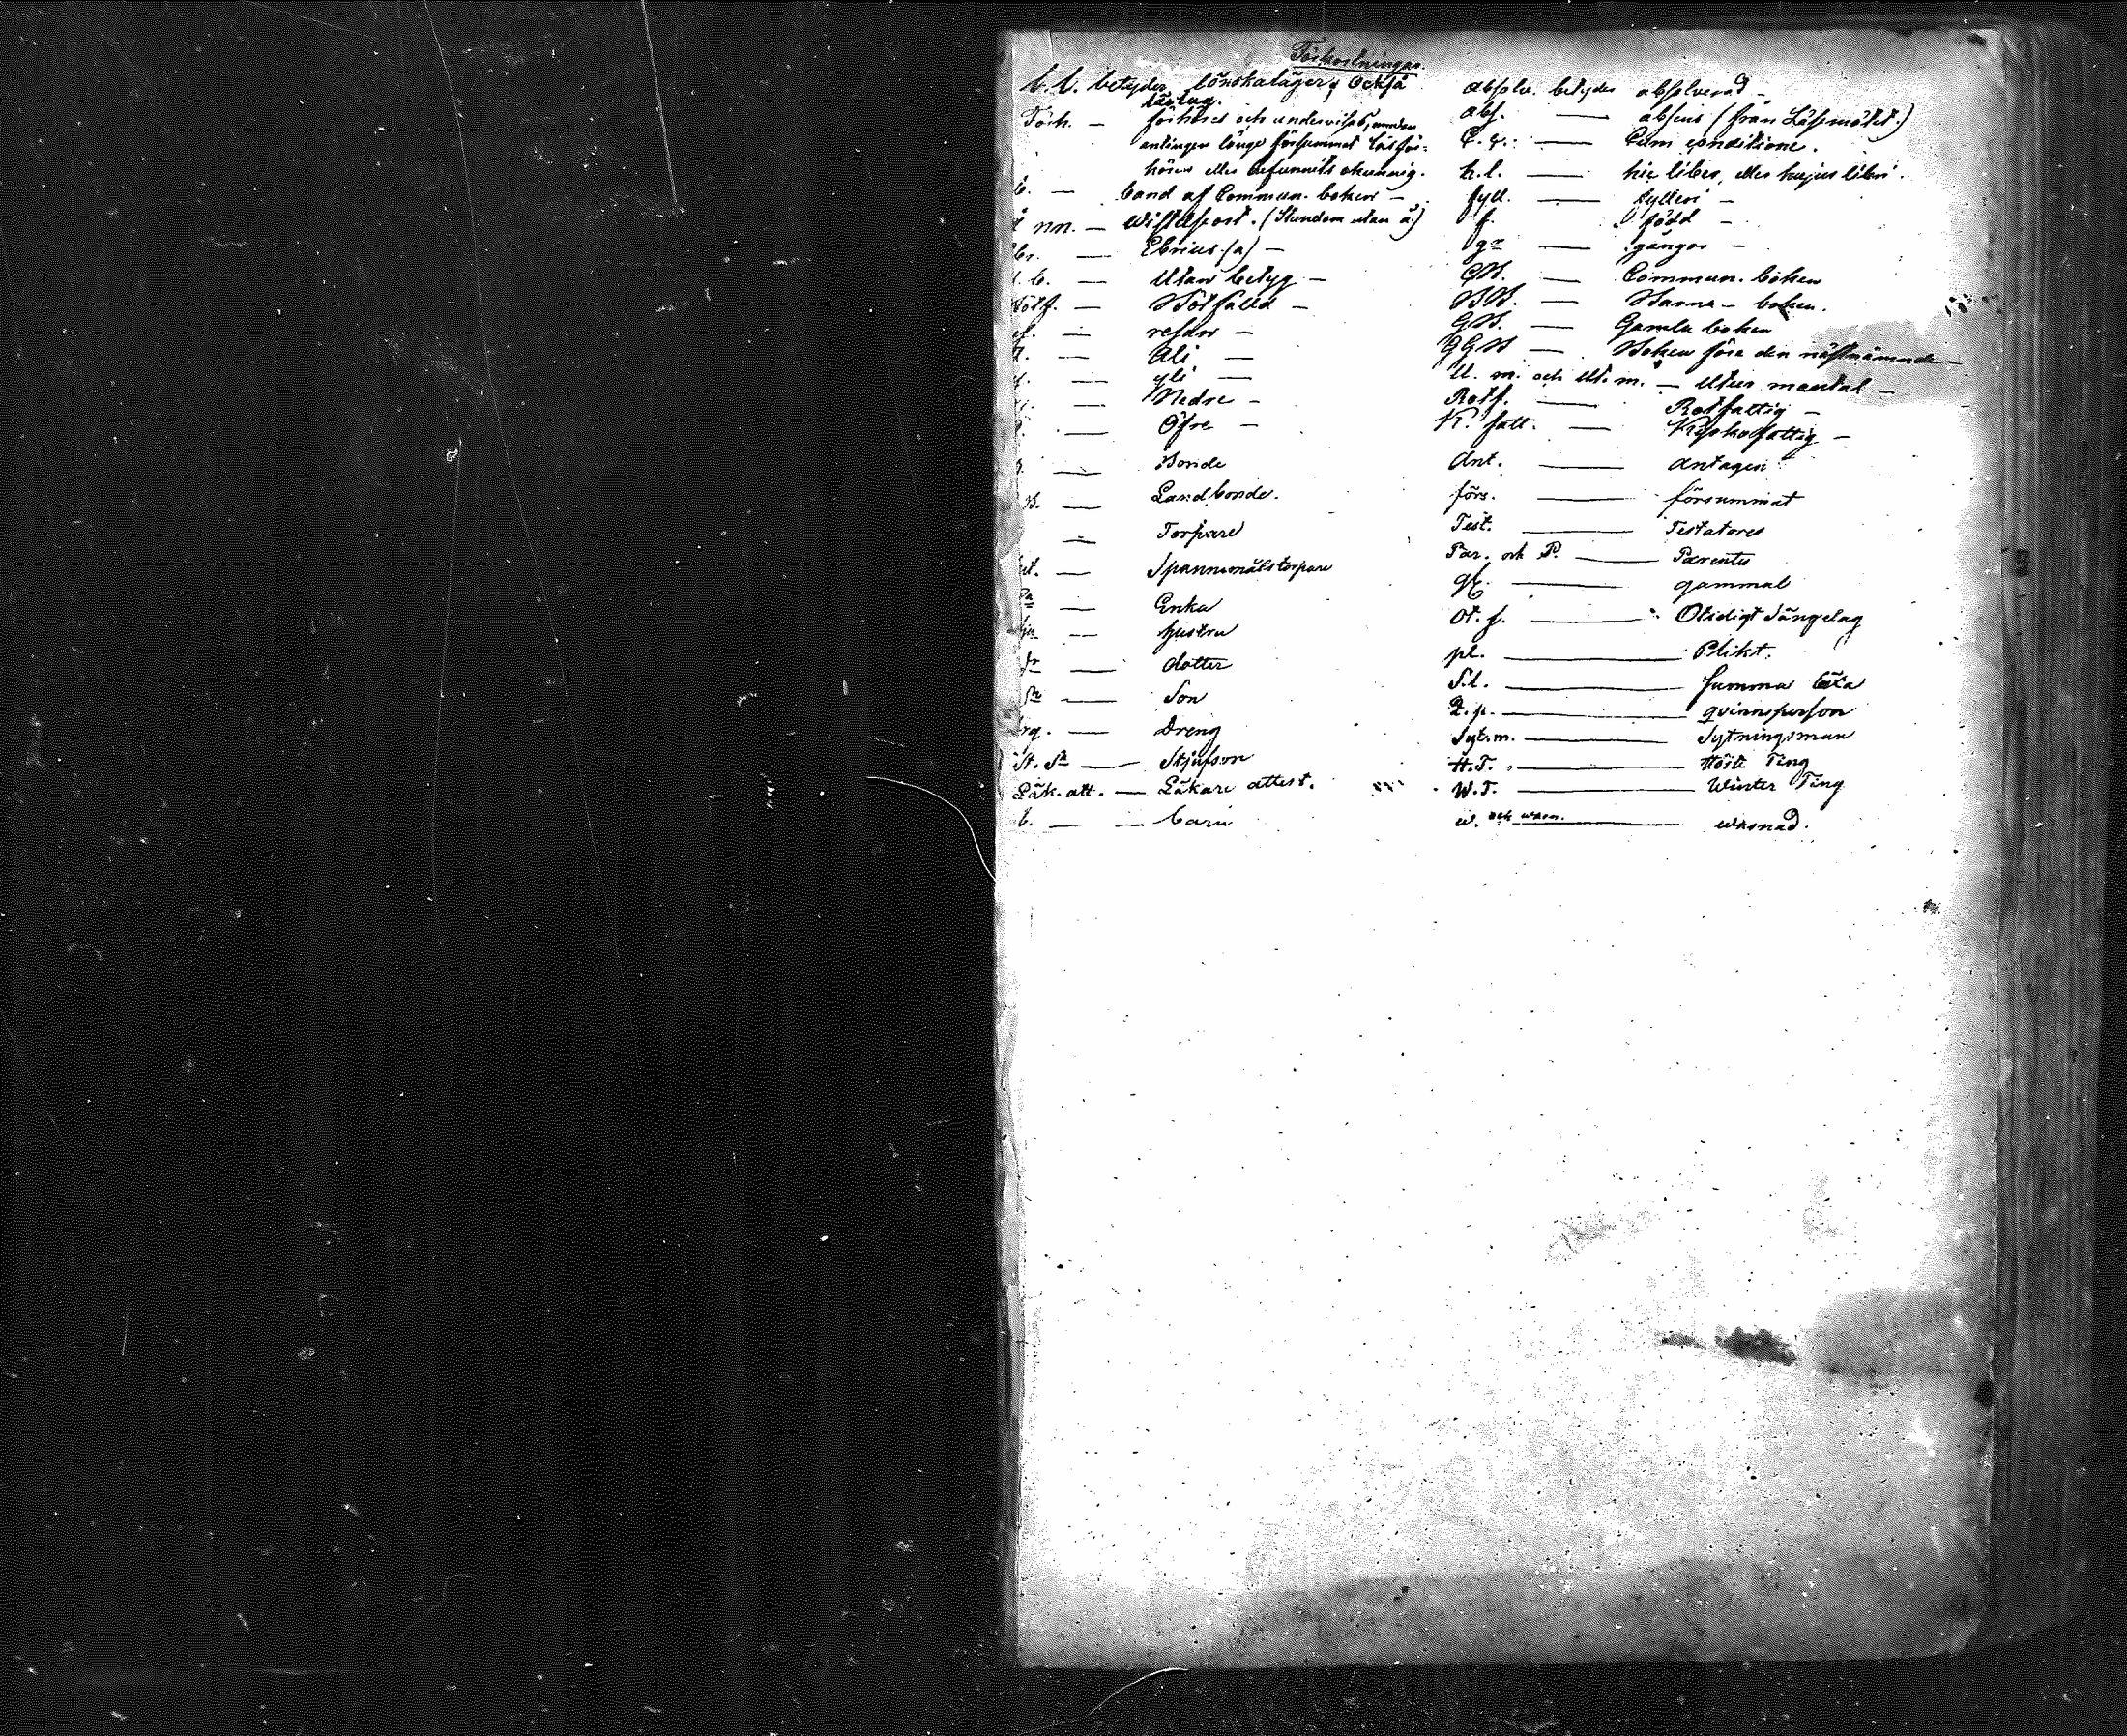 Förkortningar.
l.l. betyder lönskaläger, också
laglag.
Förh. — förhörd och undervist, emedan
antingen länge försummat läsför-
hören eller befunnits okunnig.
b. — band af Commun. boken —
nn. — Wistelseort. (Stundom utan å)
br. — Ebrius (a) —
b. — Utan betyg —
Bötf. — Bötfälld —
— resdn —
— Ali —
— yli —
— Nedre —
— Öfre —
— Bonde
B. — Landbonde.
— Torpare
— Spannmålstorpare
— Enka
— hustru
— dotter
— Son
— Dreng
St. Sn — Stjufson
Läk. att. — Läkare attest.
b. — — barn
absolv. betyder absolverad —
abs. — absens (från Läsmötet.)
C. c. — Cum conditione.
h.l. — hic liber, eller hujus libri.
fyll. — fylleri —
f. — född —
gr — gångor —
CB. — Commun. boken
BB. — Barna-boken.
GB. — Gamla boken
GGB — Boken före den nästnämnde —
U. m. och Ut. m. — Utur mantal —
Rotf. — Rotfattig —
K. fatt. — Kyrkofattig —
Ant. — Antagen
förs. — försummat
Test. — Testatores
Par. och P. — Parentes
gl. — gammal
Ot. s. — Otidigt Sängelag
pl. — Plikt.
S.l. — Samma läxa
Q.p. — qvinnsperson
Syt.m. — Sytningsman
H.T. — Höst Ting
W.T. — Winter Ting
w. och warn. — warnad.